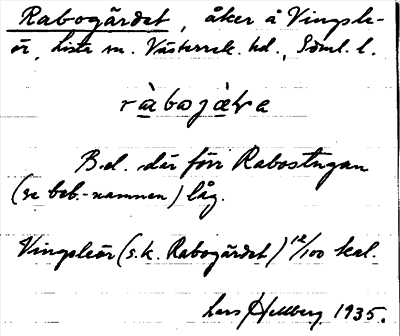 Rabogärdet, åker å Vingsle-
ör, Lista sn. Västerrek. hd., Söml. l.
ràbogä̀ḷa
B.d. där förr Rabostugan
(se beb.-namnen) låg.
Vingsleör (s.k. Rabogärdet) 12/100 skal.
Lars Hellberg 1935.